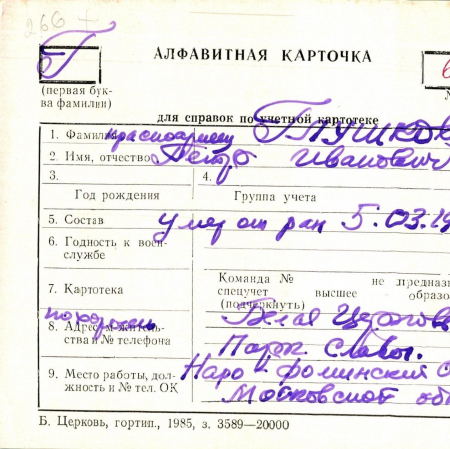 266 г
Г
АЛФАВИТНАЯ КАРТОЧКА
(первая бук-
ва фамилии)
для справок по учетной картотеке
1. Фамилия красноармеец Глушков
2. Имя, отчество Петр Иванович
3.
4.
Год рождения
Группа учета
5. Состав умер от ран 5.03.19
6. Годность к воен-
службе
Команда № не предназ
7. Картотека спецучет высшее образо
(подчеркнуть)
похоронен Белая Церковь
8. Адрес и житель-
ства и № телефона Парк Славы.
9. Место работы, дол-
жность и № тел. ОК
Наро Фоминский
Московской об
Б. Церковь, гортип., 1985, з. 3589—20000